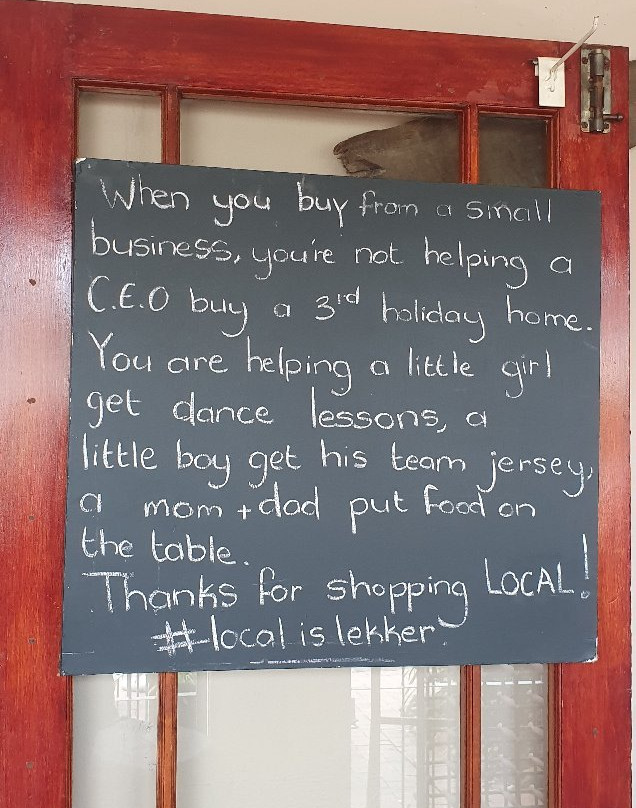 When you buy from a small
business, you're not helping a
C.E.O buy a 3rd holiday home.
You are helping a little girl
get dance lessons, a
little boy get his team jersey,
a mom + dad put food on
the table.
Thanks for shopping LOCAL!
# local is lekker